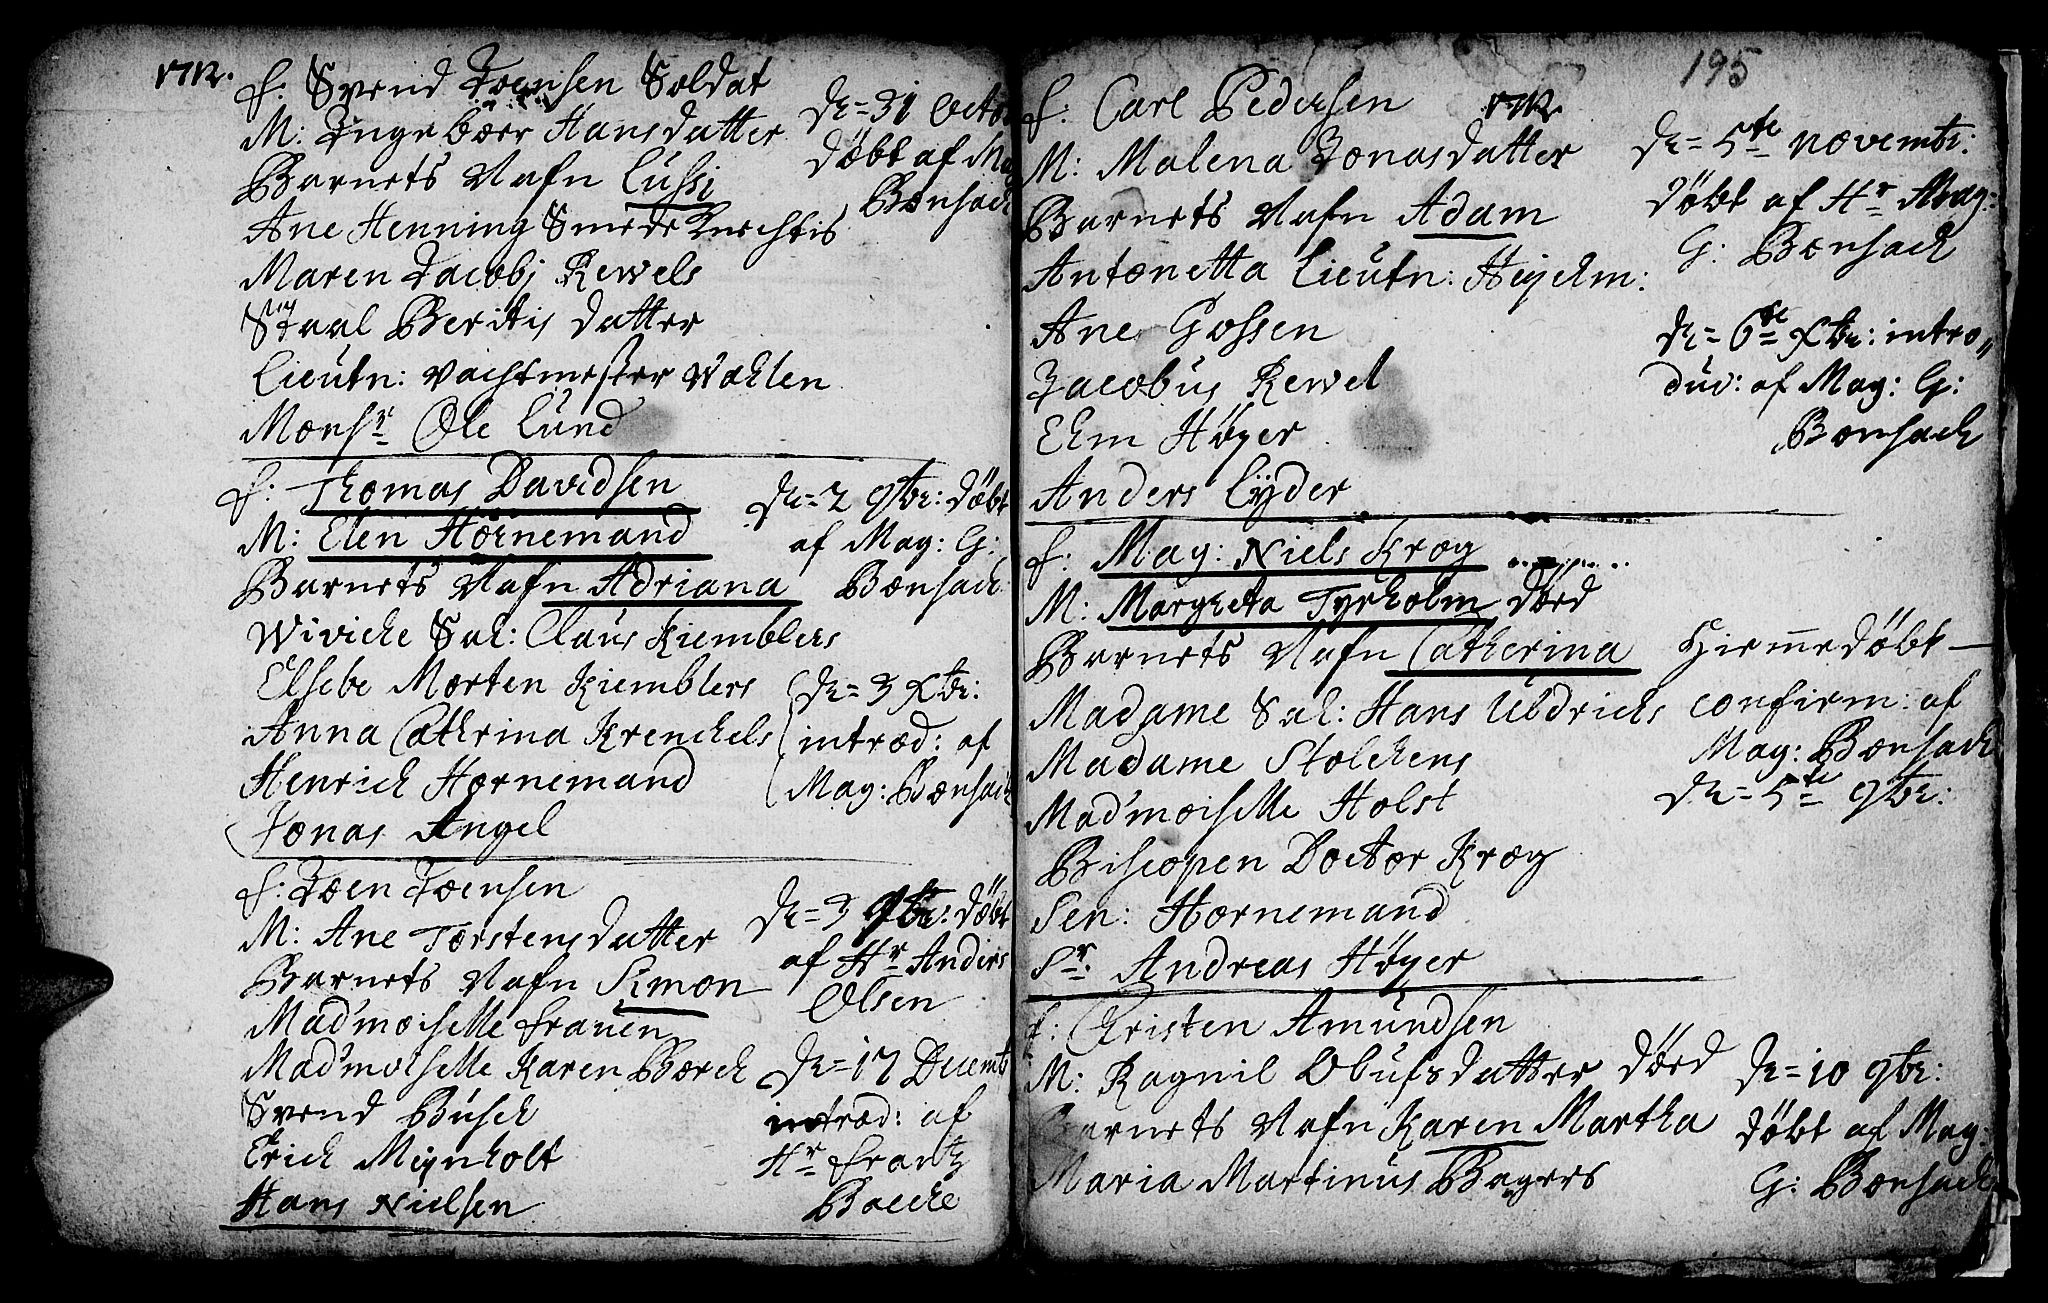 1712.
f: Svend Joensen Soldat
M: Ingebоer Hansdatter
Barnets Nafn Lussi
Ane Henning Smede Knechtis
Maren Jacobj Kewels
Beritis datter
Lieutn: Vachtmester Wahlen
Monsr Ole Lund
d: = 31 Octo
døbt af Ma
Bonsach
f: Thomas Davidsen
M: Elen Hornemand
Barnets Nafn Adriana
Wiviche Sal: Claus Kiemblers
Elsebe Morten Kiemblers
Anna Cathrina Krenckels
Henrich Hornemand
Jonas Angel
d: = 2 9br: døbt
af Mag: G:
Bonsach
d: = 3 Xbr:
introd: af
Mag: Bonsach
f: Joen Joensen
M: Ane Torstensdatter
Barnets Nafn Simon
Mad'moiselle Frauen
Mad'moiselle Karen Borch
Svend Busch
Erich Meynholt
Hans Nielsen
d: = 3 9br: døbt
af Hr Anders
Olsen
d: = 17 Decemb
introd: af
Hr Frantz
Baeche
195
1712
f: Carl Pedersen
M: Malena Jonasdatter
Barnets Nafn Adam
Antonetta Lieutn: Heyelm:
Ane Gossen
Jacobus Kewel
Elm Høyer
Anders Lÿder
d: = 5te novembr:
døbt af Hr Mag:
G: Bonsach
d: = 6te Xbr: intro„
duc: af Mag: G:
Bonsach
f: Mag: Niels Krog
M: Margreta Tyrholm død
Barnets Nafn Catherina
Madame Sal: Hans Uldrichs
Madame Stolchens
Mad'moiselle Holst
Biscopen Doctor Krog
Sen: Hornemand
Sr. Andreas Høyer
Hiemedøbt –
confirm: af
Mag: Bonsach
d: = 5te 9br:
f: Christen Amundsen
M: Ragnil Olufsdatter død
Barnets Nafn Karen Martha
Maria Martinus Bagers
d: = 10 9br:
døbt af Mag:
G: Bonsach